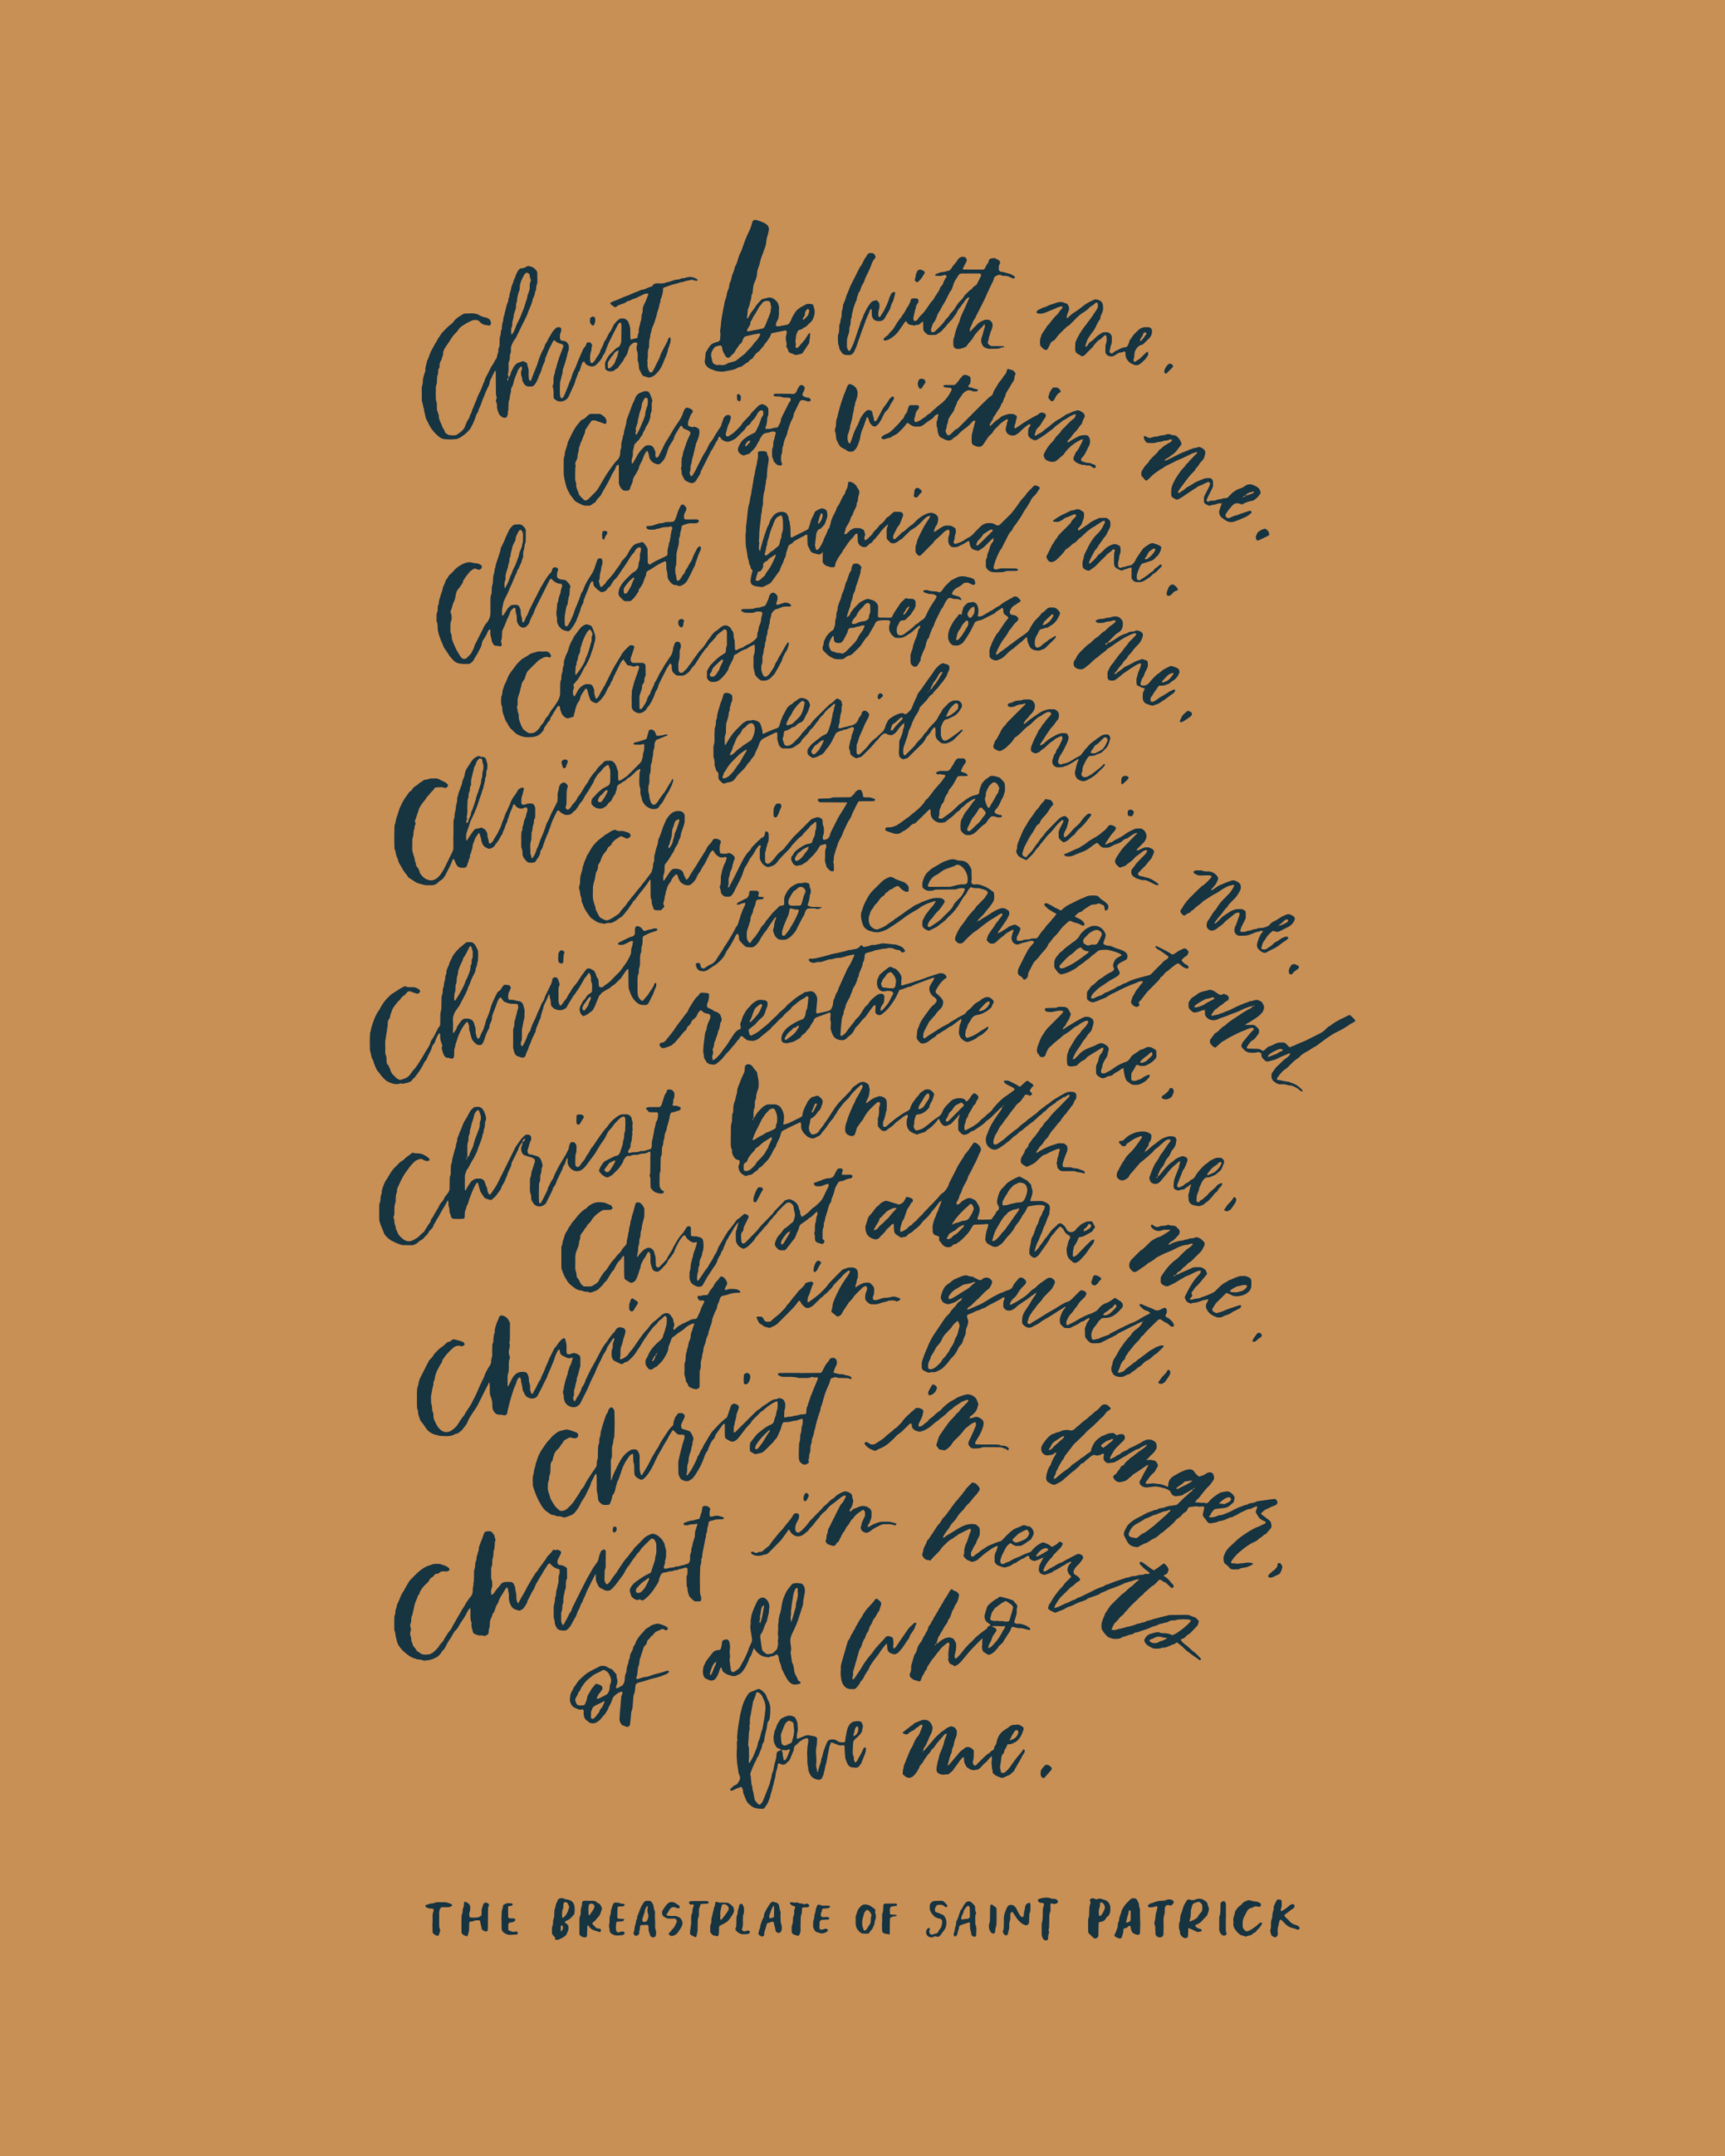 Christ be with me,
Christ within me.
Christ behind me,
Christ before me,
Christ beside me,
Christ to win me.
Christ to comfort and
restore me,
Christ beneath me,
Christ above me.
Christ in quiet,
Christ in danger,
Christ in hearts
of all who
love me.
THE BREASTPLATE OF SAINT PATRICK